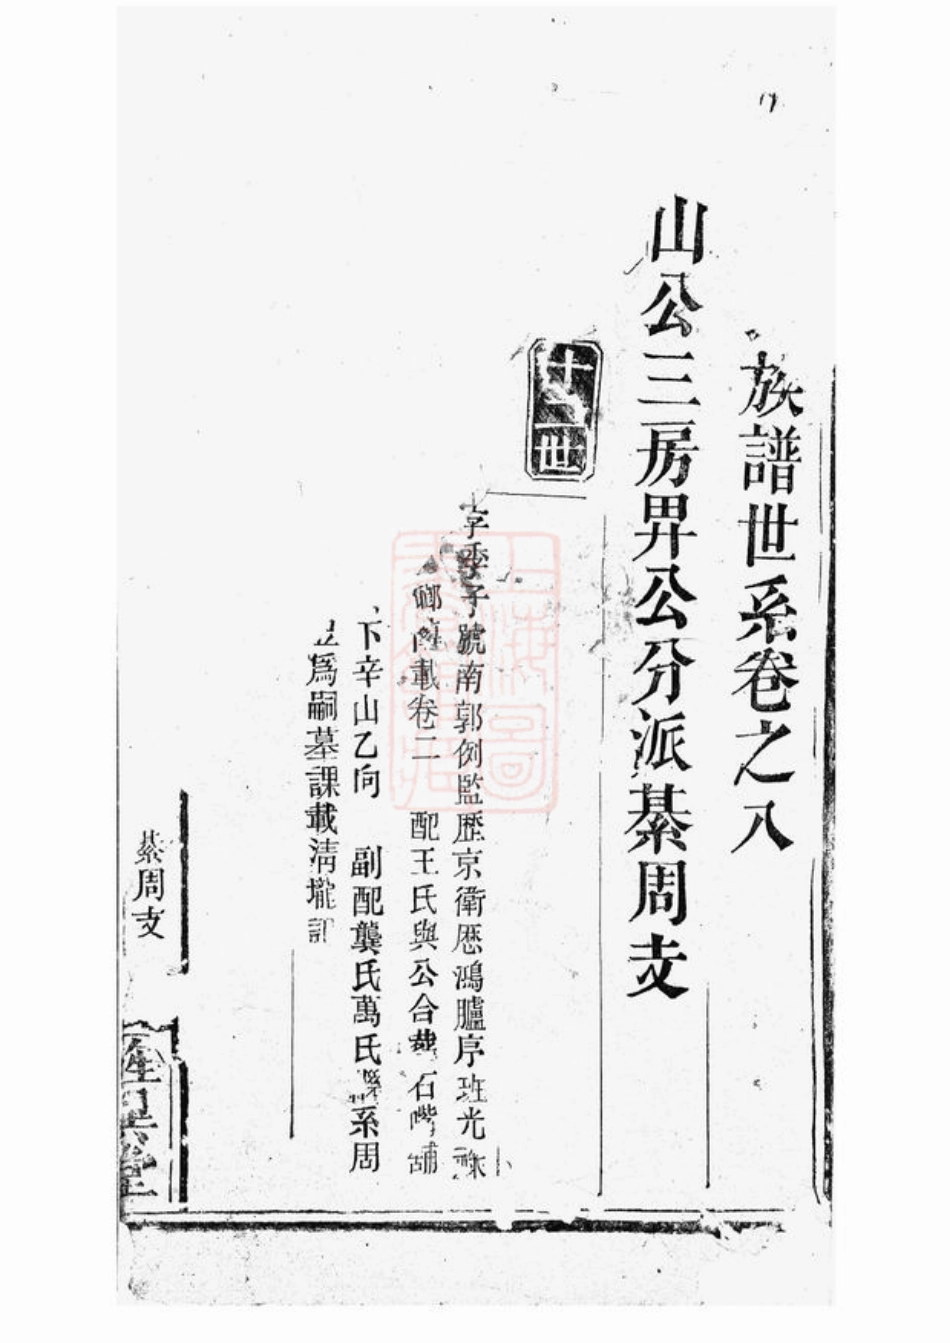 族譜世系卷之八
山公三房畀公分派綦周支
世
字季子號南郭例監歷京衛歷鴻臚序班光祿
載卷二 配王氏與公合葬石
下辛山乙向 副配龔氏萬氏 系周
爲嗣墓課載清壠記
綦周支